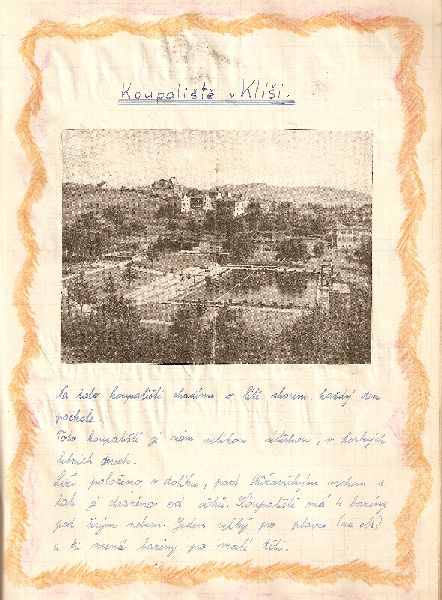 Koupaliště v Klíši.
Na toto koupaliště chodíme v létě skorem každý den
pochode.
Toto koupaliště je nám velikou útěchou, v horkých
letních dnech.
Leží položeno v dolíku, pod Střížovickým vrchem a
tak je chráněno od větrů. Koupaliště má 4 bazény
pod širým nebem. Jeden velký pro plavce
a tři menší bazény pro malé děti.